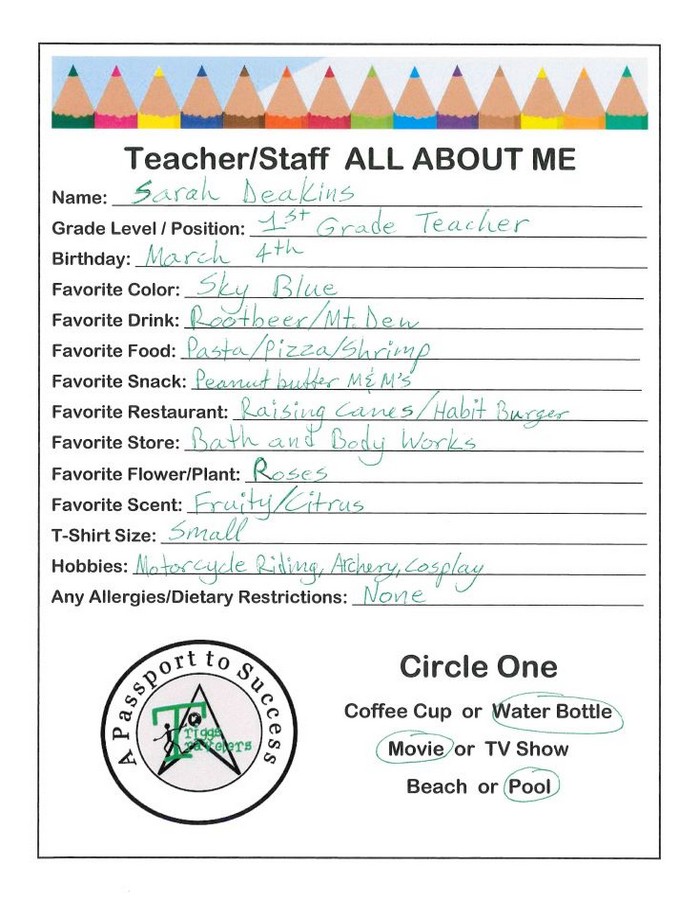 Teacher/Staff ALL ABOUT ME
Name: Sarah Deakins
Grade Level / Position: 1st Grade Teacher
Birthday: March 4th
Favorite Color: Sky Blue
Favorite Drink: Rootbeer/Mt. Dew
Favorite Food: Pasta/Pizza/Shrimp
Favorite Snack: Peanut butter M&M's
Favorite Restaurant: Raising Canes/Habit Burger
Favorite Store: Bath and Body Works
Favorite Flower/Plant: Roses
Favorite Scent: Fruity/Citrus
T-Shirt Size: Small
Hobbies: Motorcycle Riding, Archery, Cosplay
Any Allergies/Dietary Restrictions: None
A Passport to Success
Triggs
Travelers
Circle One
Coffee Cup or Water Bottle
Movie or TV Show
Beach or Pool